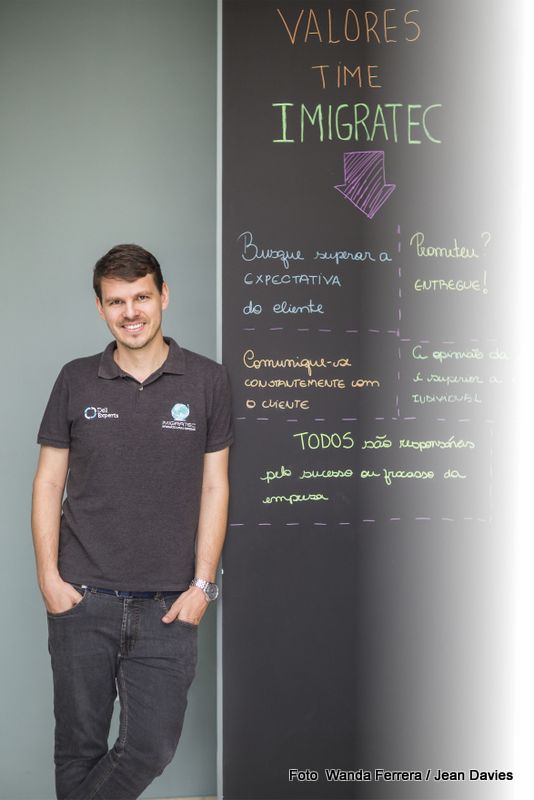 VALORES
TIME
IMIGRATEC
Busque superar a
EXPECTATIVA
do cliente
Prometeu?
ENTREGUE!
Comunique-se
CONSTANTEMENTE com
O CLIENTE
A opinião da
é superior a
INDIVIDUAL
TODOS são responsáveis
pelo sucesso ou fracasso da
empresa
Dell
Experts
IMIGRATEC
Foto Wanda Ferrera / Jean Davies